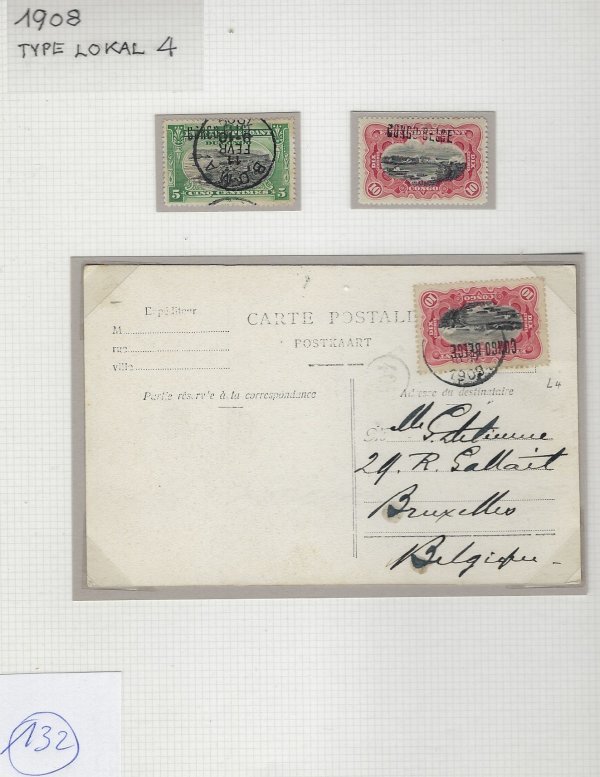 1908
TYPE LOKAL 4
5 5
CINQ CENTIMES
BOMA
11
CONGO BELGE
DIX DIX
10 CONGO 10
10 10
DIX CONGO DIX
CONGO BELGE
Expéditeur
M
rue
ville
CARTE POSTALE
POSTKAART
Partie réservée à la correspondance
Adresse du destinataire
L4
29. R. Gallait
Bruxelles
Belgique
132